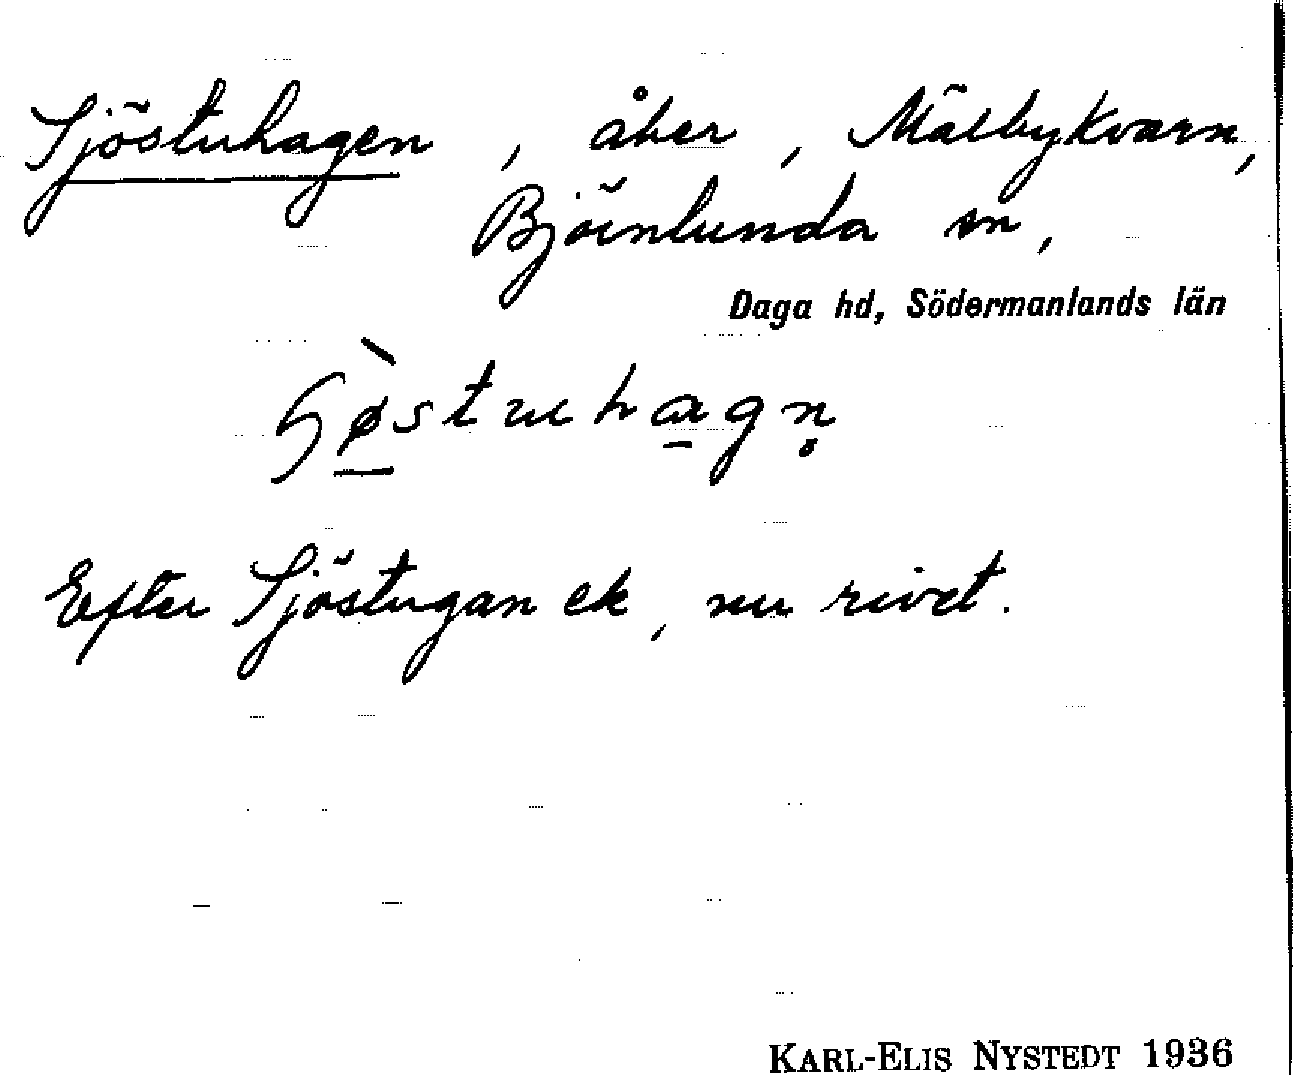 Sjöstuhagen, åker, Mälbykvarn,
Björnlunda sn,
Daga hd, Södermanlands län
Efter Sjöstugan ek, nu rivet.
KARL-ELIS NYSTEDT 1936